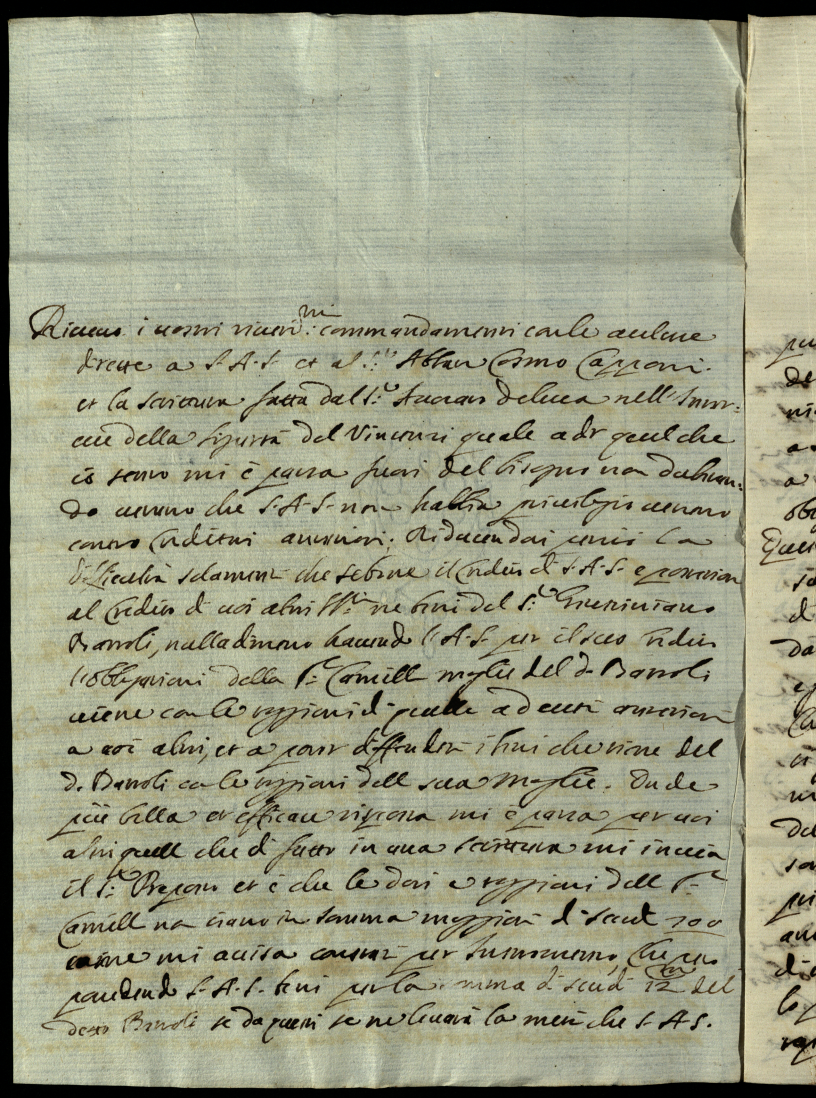 Riceuo i uostri riuerd.mi commandamenti con le
dirette a S.A.S. et al S.r Abbate Cosmo Capponi.
et la scrittura fatta dal S.r de luca nell'
della del Vincenzi quale a dir quel che
io sento mi è parsa fuori del bisogno non dubitan-
do ueruno che S.A.S. non habbia priuilegio ueruno
contro Creditori anteriori. Riducendosi la
difficultà solamente che sebene il Credito di S.A.S. è posteriore
al Credito di uoi altri SS.ri ne beni del S.r
Bartoli, nulladimeno hauendo S.A.S. per il suo Credito
l'obbligazioni della S.ra Camilla moglie del d. Bartoli
uiene con le ragioni di quella ad essere anteriore
a uoi altri, et a poter difendere i beni che tiene del
d. Bartoli con le ragioni della sua Moglie.
più bella et efficace risposta mi è parsa per uoi
altri quella che di fatto in una scrittura mi inuia
il S.r et è che le doti e ragioni della S.ra
Camilla non siano in somma maggiore di scudi 700
come mi auisa constare per Instrumento, Che
possedendo S.A.S. beni per la somma di scudi 12/m del
detto Bartoli se da questi se ne leuarà la metà che S.A.S.